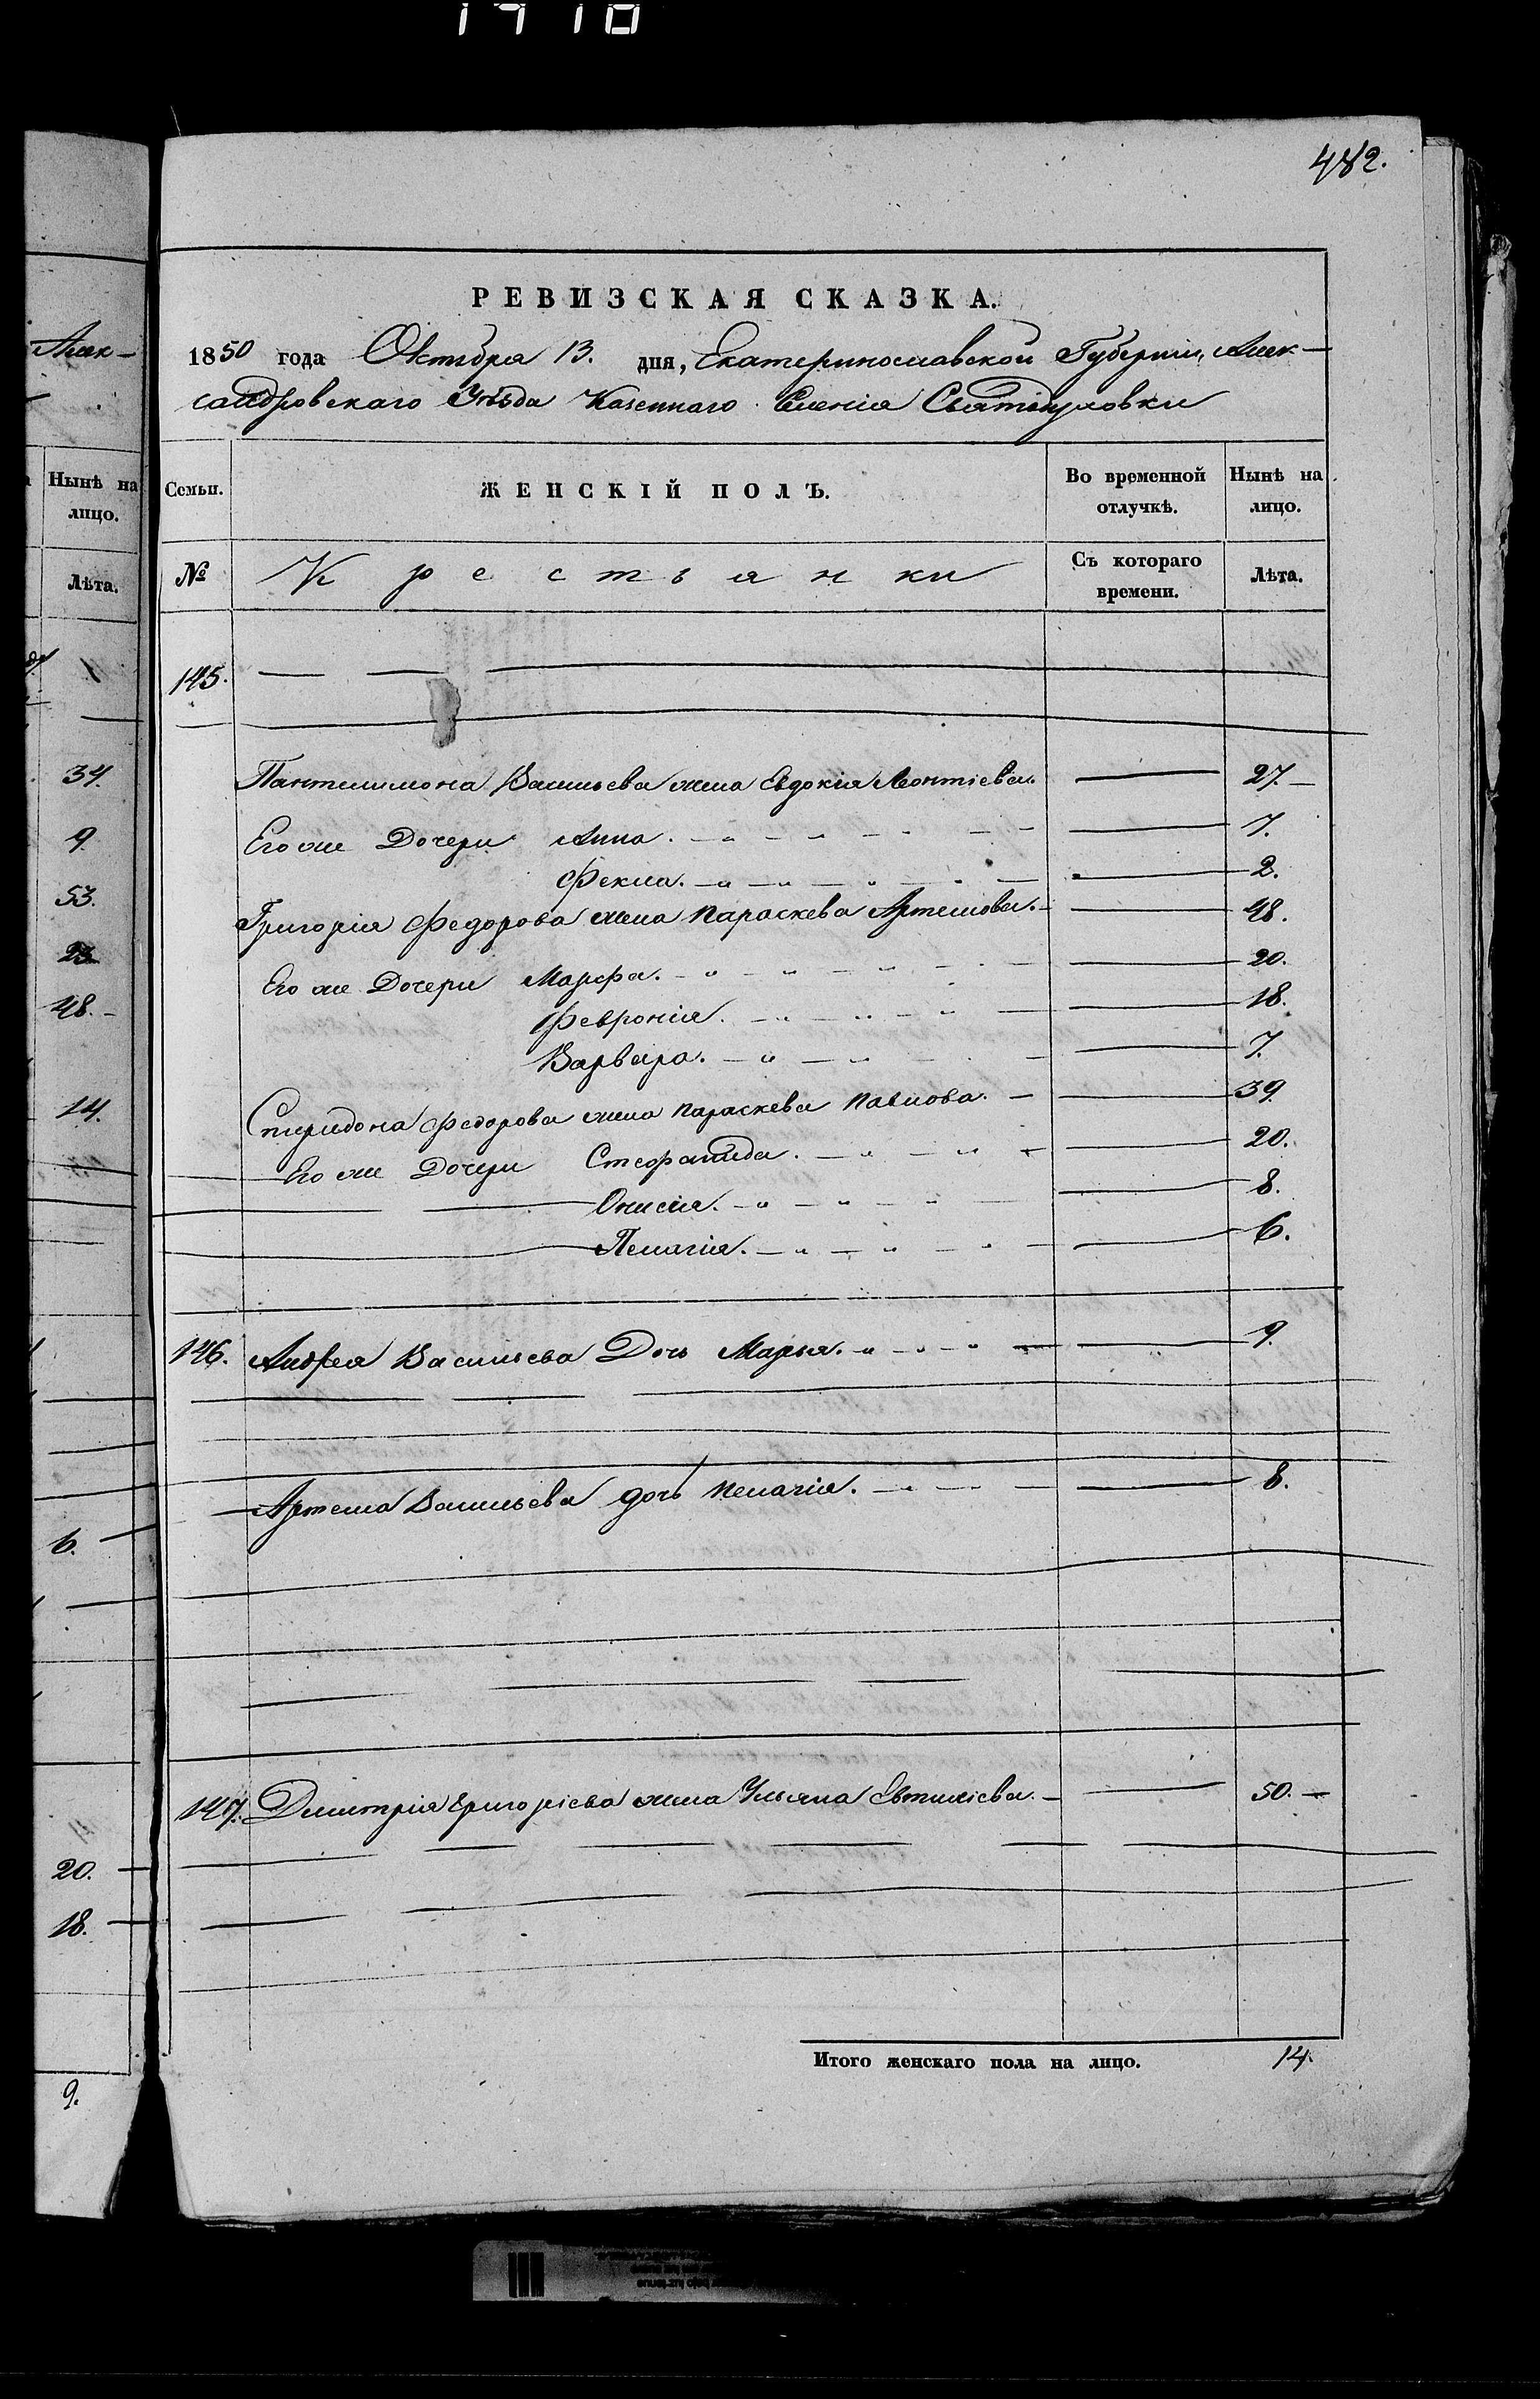 1718
482.
РЕВИЗСКАЯ СКАЗКА.
1850 года Октября 13. дня, Екатеринославской Губерніи, Алек-
сандровскаго Уѣзда Казеннаго Селенія
Семьи. ЖЕНСКІЙ ПОЛЪ. Во временной отлучкѣ. Нынѣ на лицо.
№ Крестьянки Съ котораго времени. Лѣта.
145.
Пантелимона Васильева жена Евдокія Леонтіева. 27.
Его же Дочери Анна. 7.
Фекла. 2.
Григорія Федорова жена Параскева Артемова. 48.
Его же Дочери Марфа. 20.
Февронія. 18.
Варвара. 7.
Спиридона Федорова жена Параскева Павлова. 39.
Его же Дочери Стефанида. 20.
Онисія. 8.
Пелагія. 6.
146. Андрея Васильева Дочь Марья. 9.
Артема Васильева дочь Пелагія. 8.
147. Дмитрія Григоріева жена Ульяна Евтихіева. 50.
Итого женскаго пола на лицо. 14.
Алек-
Нынѣ на
лицо.
Лѣта.
34.
9.
53.
23
48.
14.
6.
20.
18.
9.